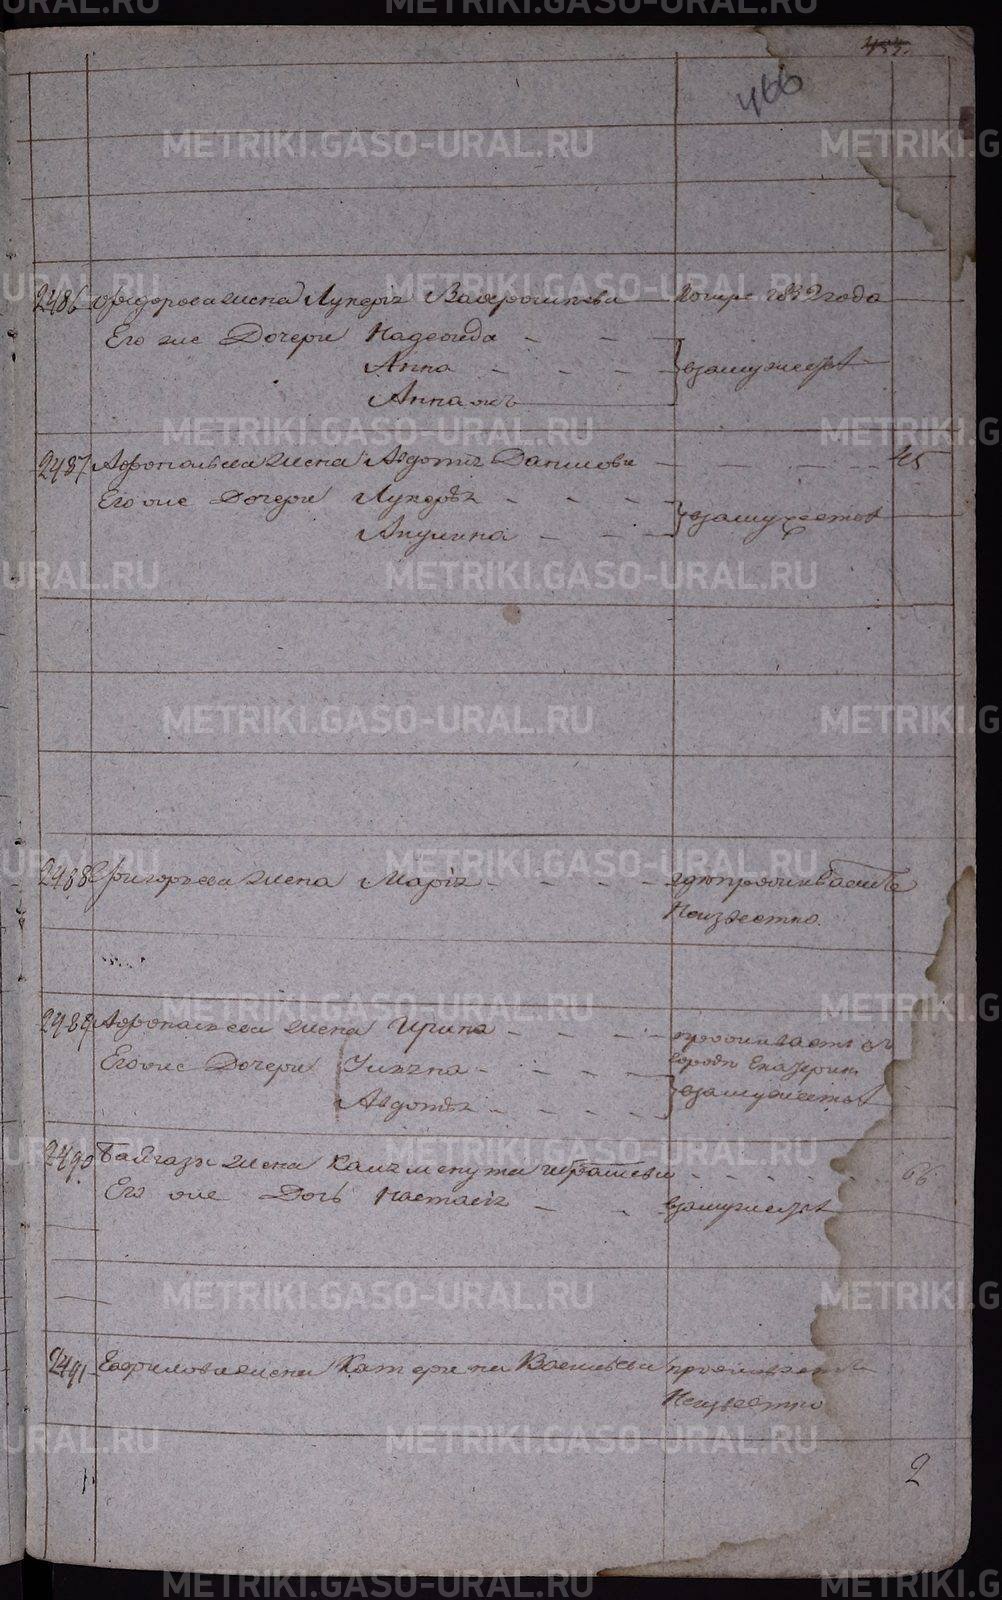 466
2486 Федорова жена Лукерья померл. 1832 года
Его же Дочери Надежда
Анна взамужестве
Анна ж
2487 Афонасьева жена Авдотья Данилова 45
Его же Дочери Лукерья взамужестве
Акулина
2488 Григорьева жена Марія где проживает
Неизвестно
2489 Афонасьева жена Ирина проживает в
Его же Дочери Ульяна городе Екатерин.
Авдотья взамужестве
2490 жена 66
Его же Дочь Настасія взамужестве
2491 Гаврилова жена Катерина Васильева проживает
Неизвестно
2
METRIKI.GASO-URAL.RU